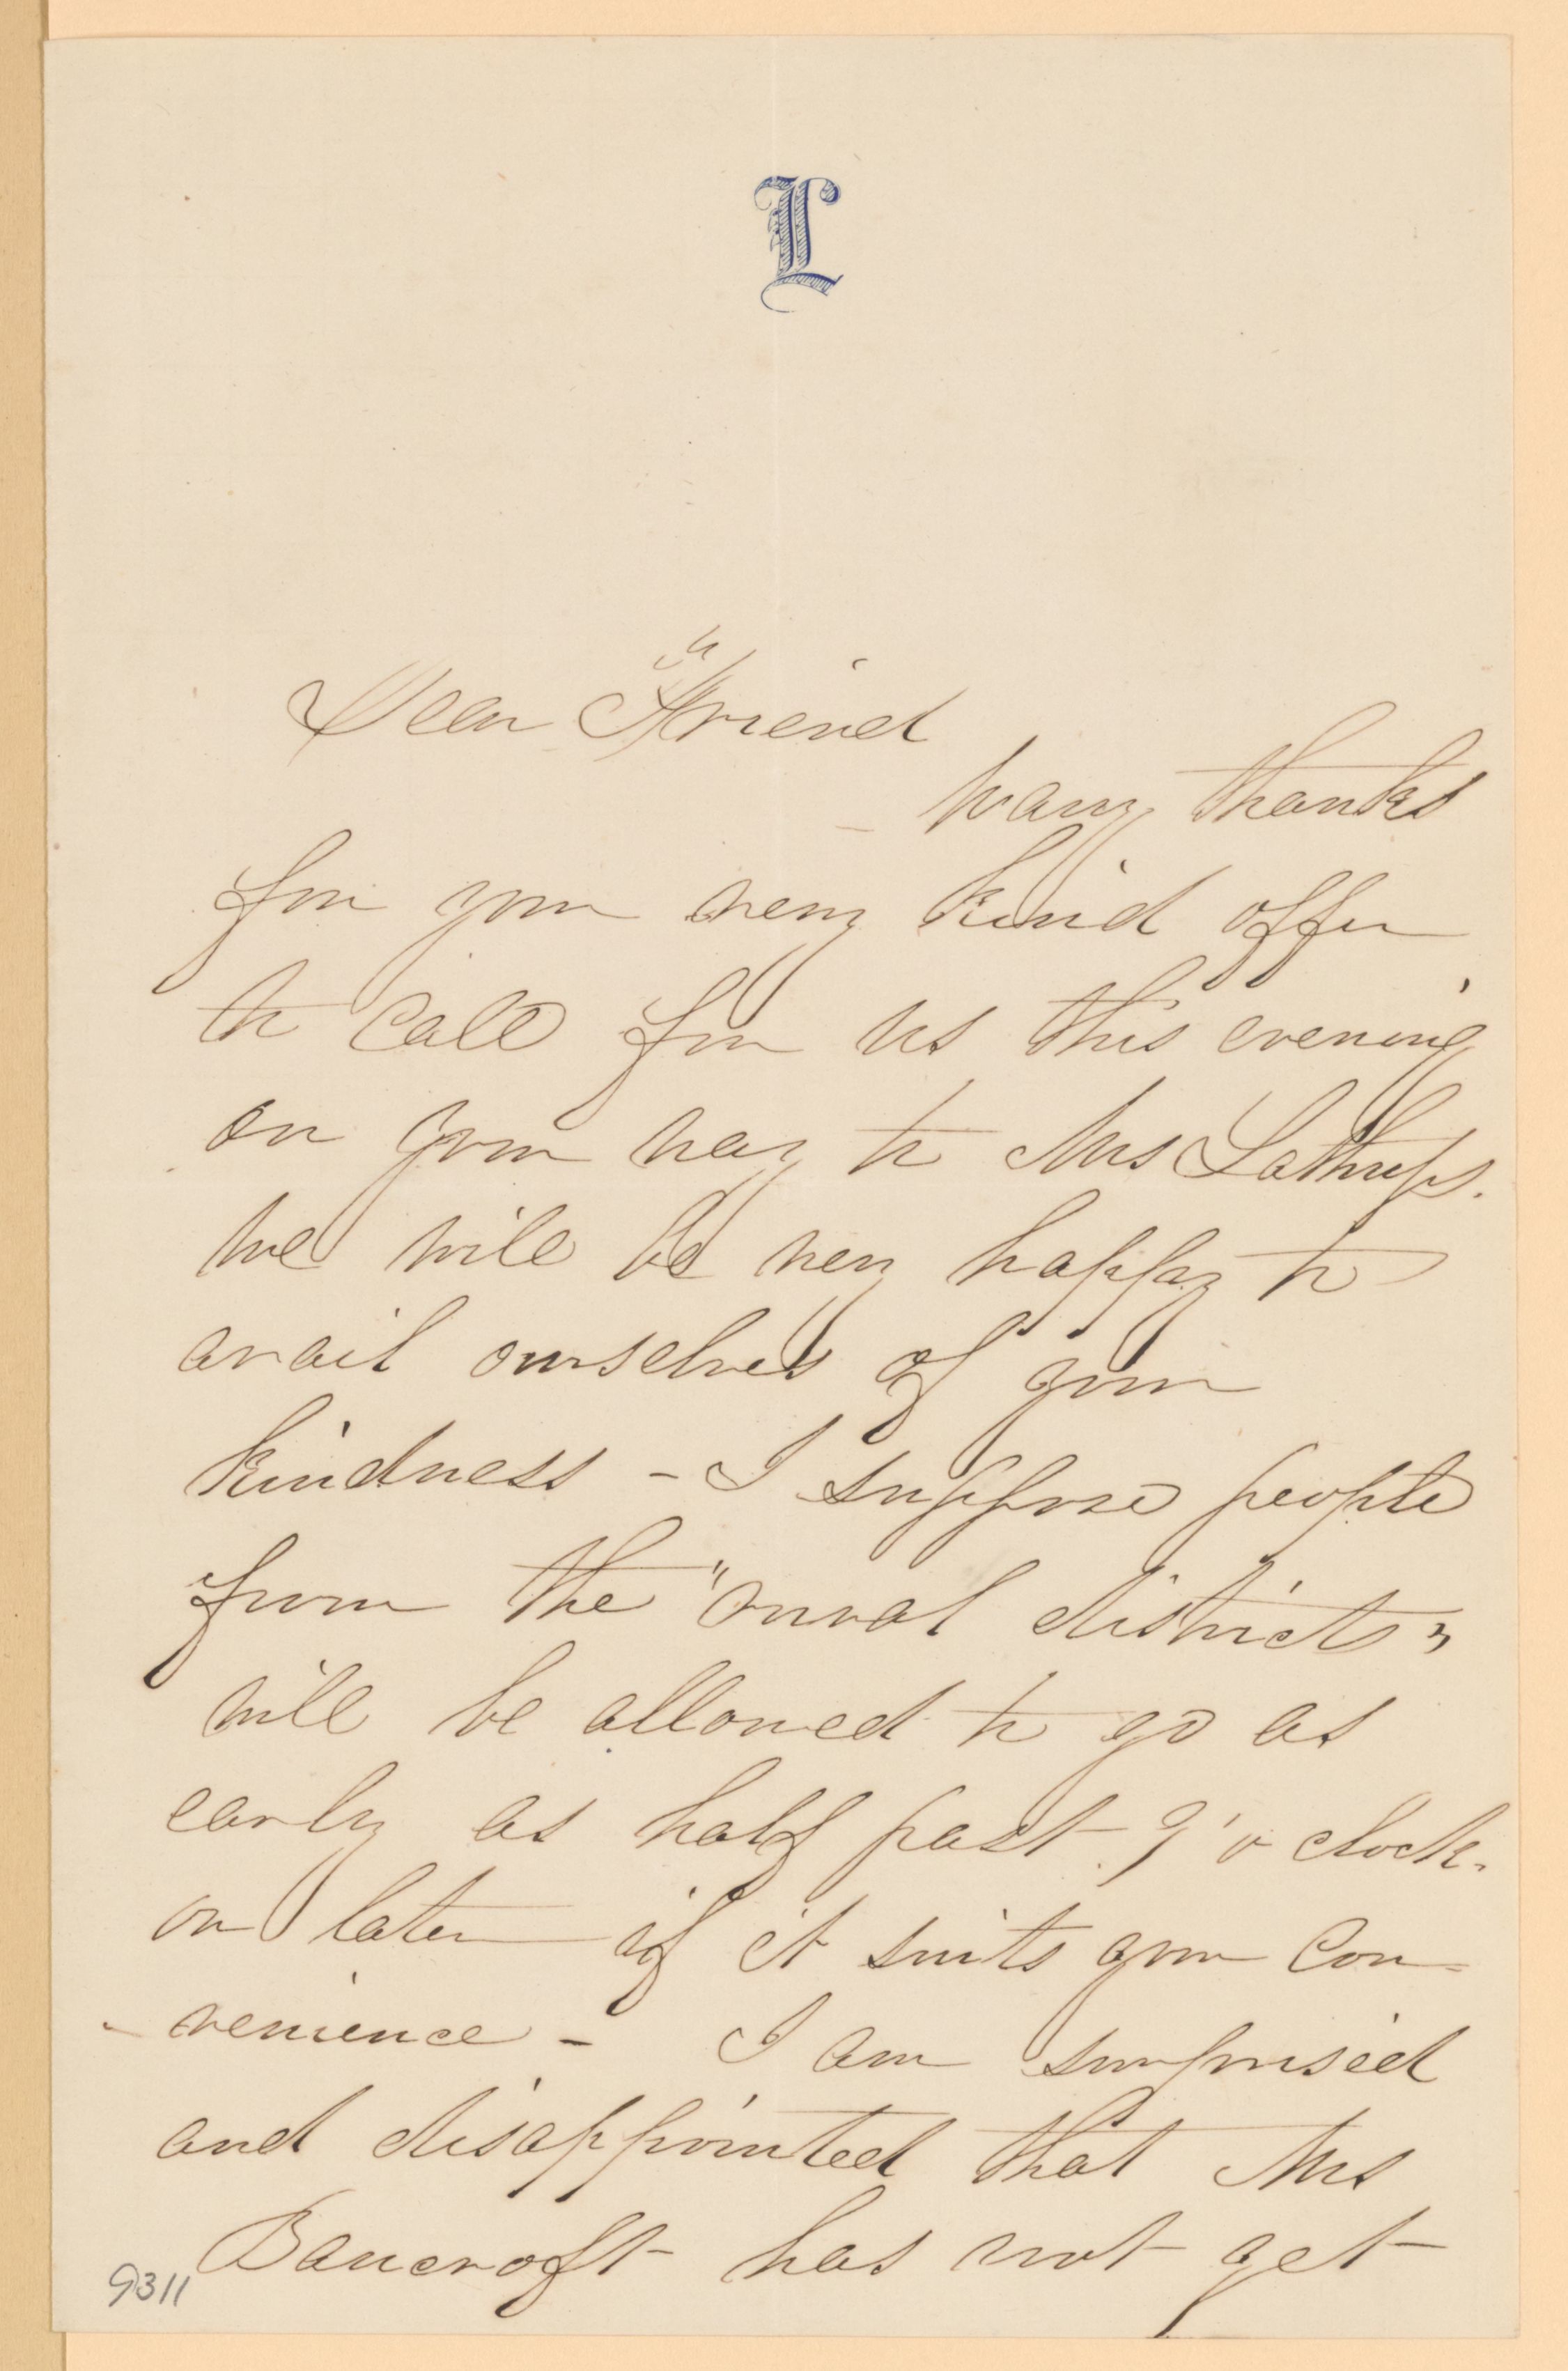 L
Dear Friend
Many thanks
for your very kind offer
to call for us this evening
on your way to Mrs Lathrops.
We will be very happy to
avail ourselves of your
kindness - I suppose people
from the "rural districts"
will be allowed to go as
early as half past 9 'o clock.
or later if it suits your con-
-venience - I am surprised
and disappointed that Mrs
Bancroft has not yet
9311